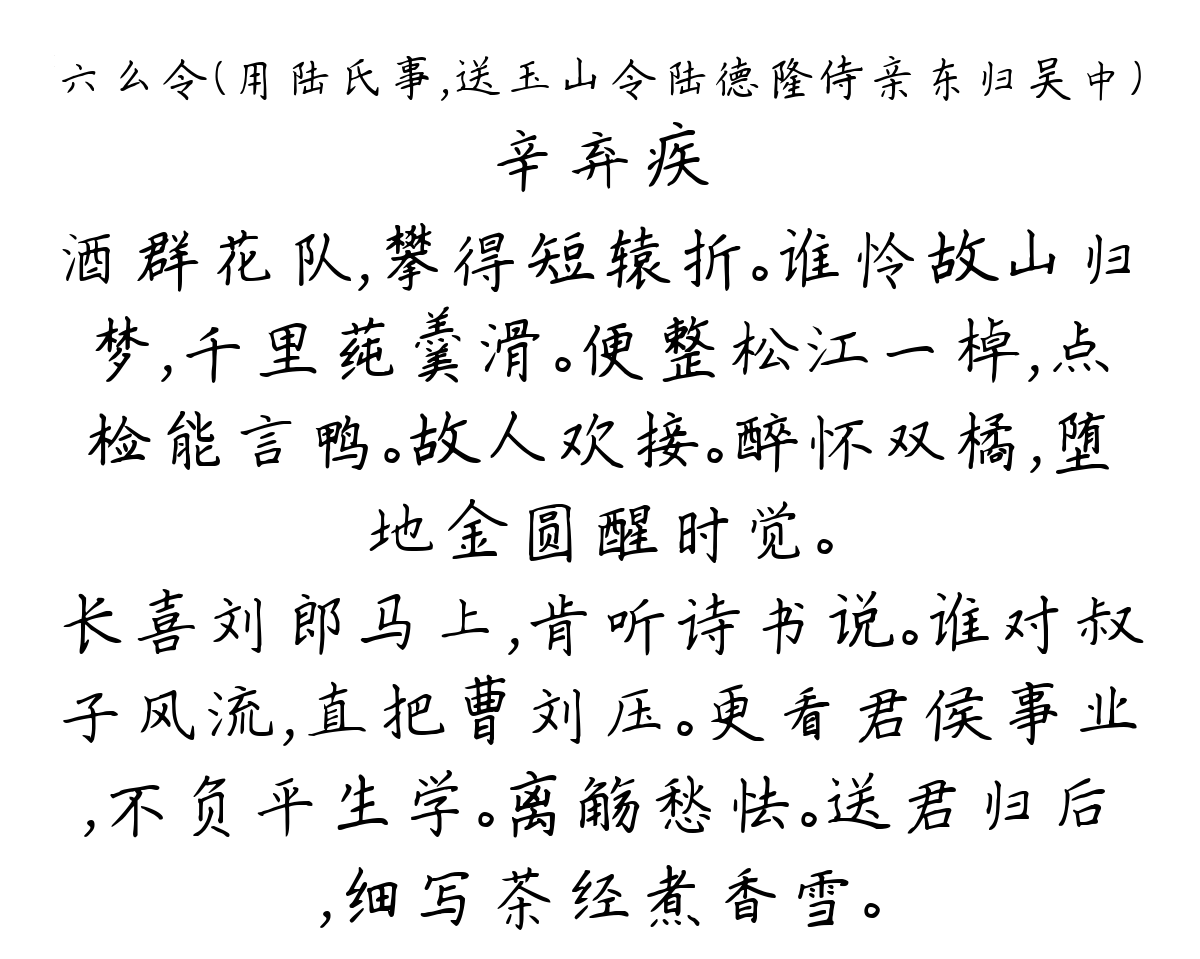 六么令(用陆氏事,送玉山令陆德隆侍亲东归吴中)
辛弃疾
酒群花队,攀得短辕折。谁怜故山归
梦,千里莼羹滑。便整松江一棹,点
检能言鸭。故人欢接。醉怀双橘,堕
地金圆醒时觉。
长喜刘郎马上,肯听诗书说。谁对叔
子风流,直把曹刘压。更看君侯事业
,不负平生学。离觞愁怯。送君归后
,细写茶经煮香雪。